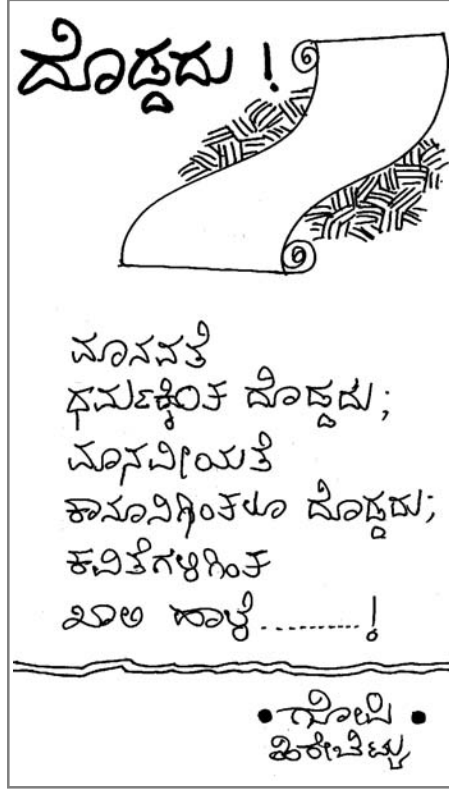 ದೊಡ್ಡದು !
ಮಾನವತೆ
ಧರ್ಮಕ್ಕಿಂತ ದೊಡ್ಡದು;
ಮಾನವೀಯತೆ
ಕಾನೂನಿಗಿಂತಲೂ ದೊಡ್ಡದು;
ಕವಿತೆಗಳಿಗಿಂತ
ಖಾಲಿ ಹಾಳೆ..........!
• ಗೋಪಿ •
ಹಿರೇಬೆಟ್ಟು